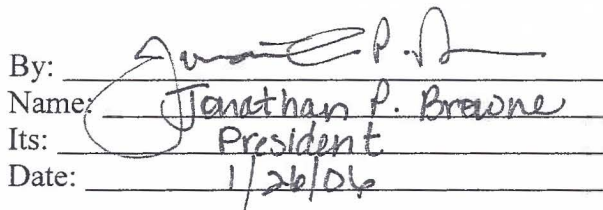 By:
Name: Jonathan P. Browne
Its: President
Date: 1/26/06